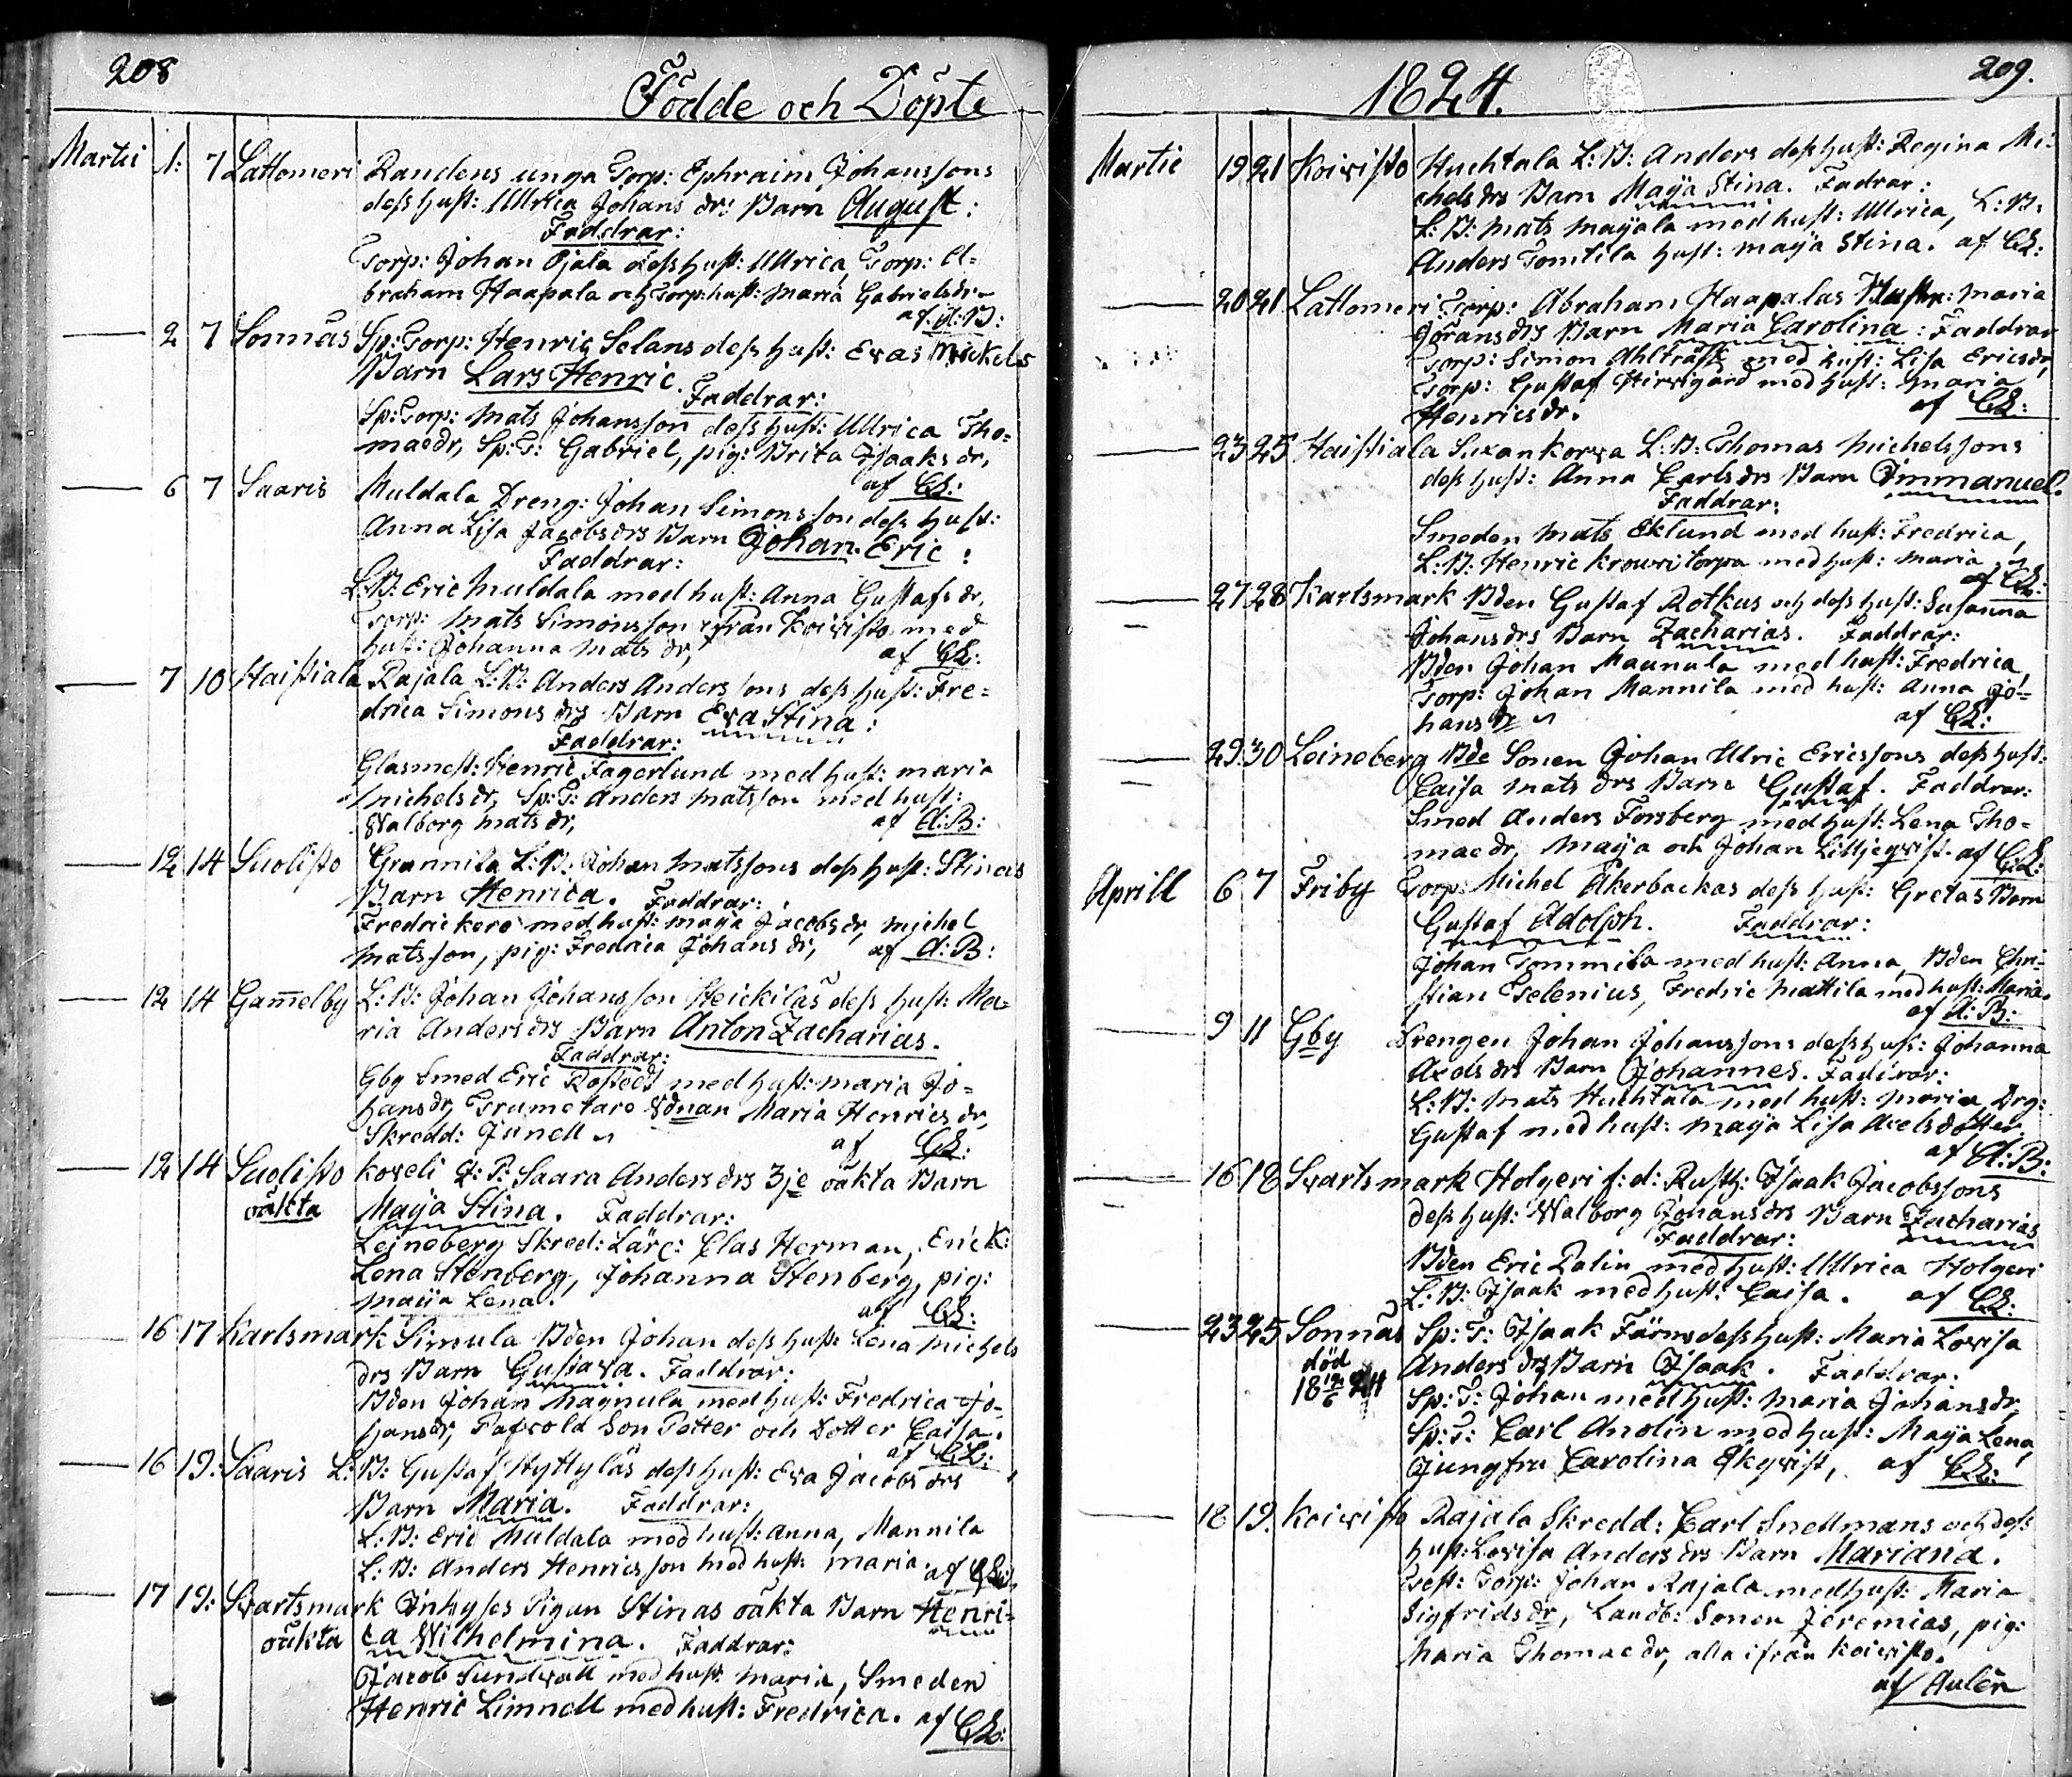 208
Födde och Döpte
Martii 1: 7 Lattomeri Randens unga Torp: Ephraim Johanssons
dess hust: Ullrica Johans drs Barn August:
Faddrar:
Torp: Johan Ojala dess hust: Ullrica, Torp: A=
braham Haapala och Torp: hust: Maria Gabrielsdr
af A: B:
2 7 Sonnäs Sp: Torp: Henric Selans dess hust: Evas Mickels
Barn Lars Henric.
Faddrar:
Sp: Torp: Mats Johansson dess hust: Ullrica Tho=
maedr, Sp: T: Gabriel, pig: Brita Isaaks dr,
af CL:
6 7 Saaris Muldala Dreng: Johan Simonsson dess hust:
Anna Lisa Jacobs drs Barn Johan Eric:
Faddrar:
L: B: Eric Muldala med hust: Anna Gustafs dr,
Torp: Mats Simonsson ifrån Koivisto med
hust: Johanna Mats dr, af CL:
7 10 Haistiala Rajala L: B: Anders Anderssons dess hust: Fre=
drica Simons drs Barn Eva Stina:
Faddrar:
Glasmest: Henric Fagerlund med hust: Maria
Michels dr, Sp: T: Anders Matsson med hust:
Walborg Mats dr, af A: B:
12 14 Suolisto Grannila L: B: Johan Matssons dess hust: Stinas
Barn Henrica. Faddrar:
Fredric Kero med hust: Maija Jacobs dr, Michel
Matsson, pig: Fredrica Johans dr, af A: B:
12 14 Gam̄elby L: B: Johan Johansson Heickiläs dess hust: Ma=
ria Anders drs Barn Anton Zacharias.
Faddrar:
Gby Smed Eric Rostedt med hust: Maria Jo=
hans dr, Trumetare Ednan Maria Henrics dr,
Skredd: Junell af CL:
12 14 Suolisto Koveli Q: P: Saara Anders drs 3je oäkta Barn
oäkta Maija Stina. Faddrar:
Leineberg Skred: Lärl: Clas Herman, Erick
Lena Stenberg, Johanna Stenberg, pig:
Maija Lena. af CL:
16 17 Karlsmark Simula Bden Johan dess hust: Lena Michels
drs Barn Gustava. Faddrar:
Bden Johan Magnula med hust: Fredrica Jo=
hans dr, Pafvold Son Petter och Dotter Caisa.
af CL:
16 19: Saaris L: B: Gustaf Hyttyläs dess hust: Eva Jacobs drs
Barn Maria. Faddrar:
L: B: Eric Muldala med hust: Anna, Mannila
L: B: Anders Henricsson med hust: Maria. af CL:
17 19: Svartsmark Inhyses Pigan Stinas oäkta Barn Henri=
oäkta ca Wilhelmina. Faddrar:
Jacob Sundvall med hust: Maria, Smeden
Henric Limnell med hust: Fredrica. af CL:
1824.
209.
Martii 19 21 Koivisto Huchtala L: B: Anders dess hust: Regina Mi=
chels drs Barn Maija Stina. Fadrar:
L: B: Mats Maijala med hust: Ullrica, L: B:
Anders Tomtila hust: Maija Stina. af CL:
20 21 Lattomeri Torp: Abraham Haapalas Hustru: Maria
Görans drs Barn Maria Carolina: Faddrar
Torp: Simon Ahlträsk med hust: Lisa Ericsdr,
Torp: Gustaf Hirvigård med hust: Maria
Henricsdr. af CL:
23 25 Haistiala Susankorva L: B: Thomas Michelssons
dess hust: Anna Carls drs Barn Immanuel.
Faddrar:
Smeden Mats Eklund med hust: Fredrica,
L: B: Henric Krouvitorpa med hust: Maria,
af CL:
27 28 Karlsmark Bden Gustaf Rotkus och dess hust: Susanna
Johans drs Barn Zacharias. Faddrar:
Bden Johan Maunula med hust: Fredrica,
Torp: Johan Mannila med hust: Anna Jo=
hans dr af CL:
29 30 Leineberg Bde Sonen Johan Ulric Ericssons dess hust:
Caisa Mats drs Barn Gustaf. Faddrar:
Smed Anders Forsberg med hust: Lena Tho=
mae dr, Maija och Johan Liljeqvist. af CL:
Aprill 6 7 Friby Torp: Michel Åkerbackas dess hust: Gretas Barn
Gustaf Adolph. Faddrar:
Johan Tommila med hust: Anna, Bden Chri=
stian Selenius, Fredric Mattila med hust: Maria.
af A: B:
9 11 Gby Drengen Johan Johanssons dess hust: Johanna
Axels drs Barn Johannes. Faddrar:
L: B: Mats Huchtala med hust: Maria, Drg:
Gustaf med hust: Maija Lisa Axelsdotter,
af A: B:
16 18 Svartsmark Holgeri f: d: Rusth: Isaak Jacobssons
dess hust: Walborg Johans drs Barn Zacharias
Faddrar:
Bden Eric Palin med hust: Ullrica Holgeri
L: B: Isaak med hust: Caisa. af CL:
23 25 Sonnäs Sp: T: Isaak Färms dess hust: Maria Lovisa
död Anders drs Barn Isaak. Faddrar:
18 12/6 24 Sp: T: Johan med hust: Maria Johans dr,
Sp: T: Carl Anolin med hust: Maija Lena,
Jungfru Carolina Ekqvist, af CL:
18 19. Koivisto Rajala Skredd: Carl Snellmans och dess
hust: Lovisa Anders drs Barn Mariana.
Test: Torp: Johan Rajala med hust: Maria
Sigfrids dr, Landb: Sonen Jeremias, pig:
Maria Thomae dr, alla ifrån Koivisto.
af Aulén